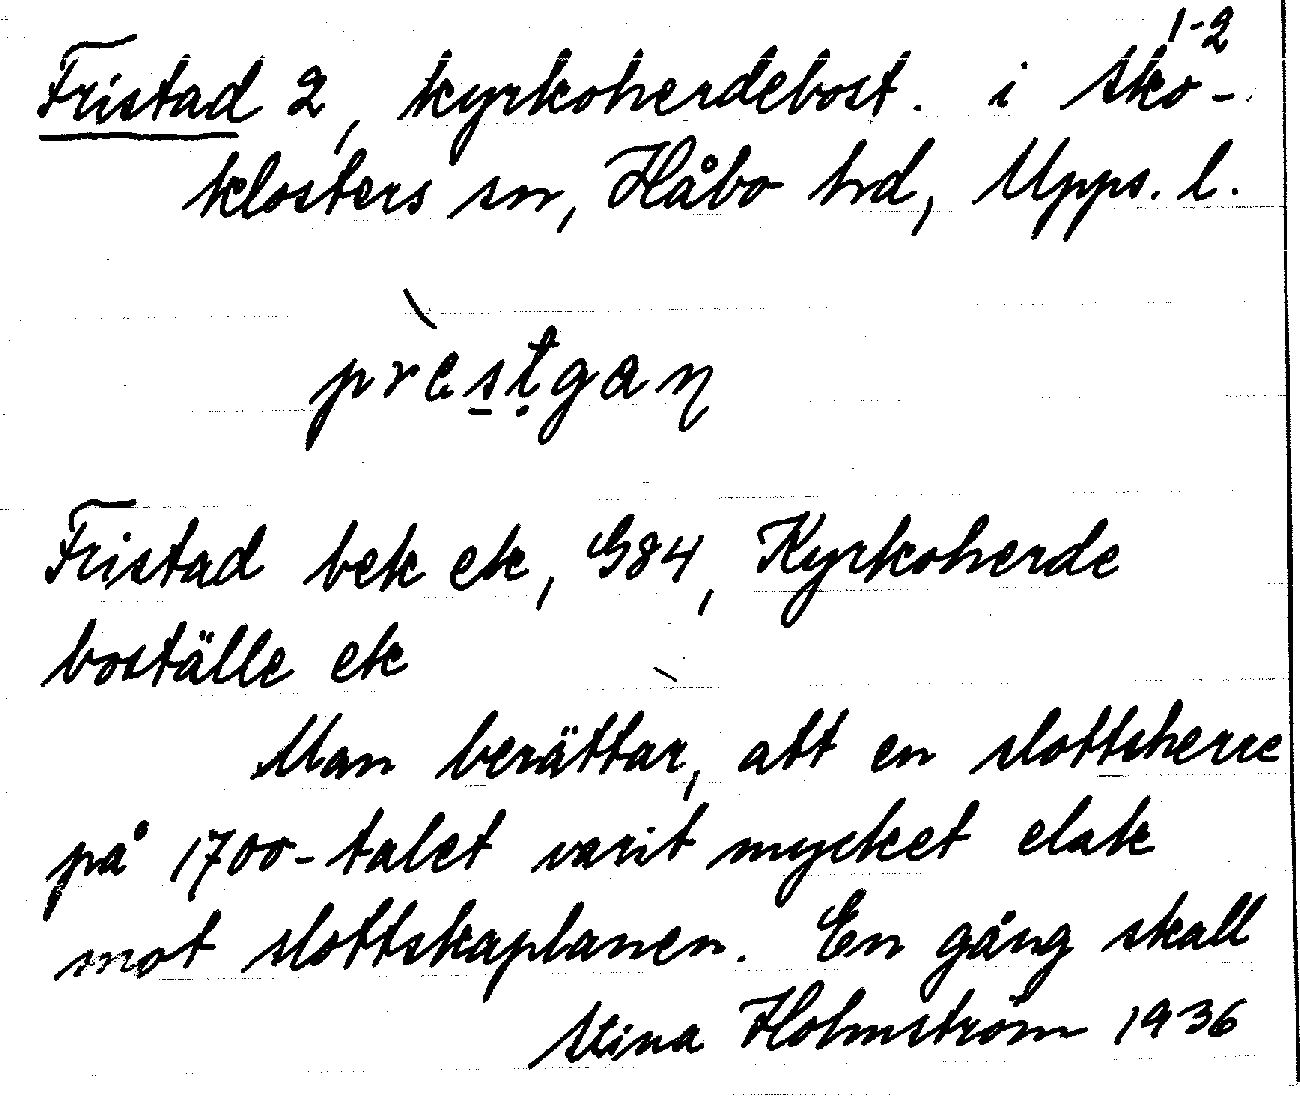 1-2
Fristad 2, kyrkoherdebost. i Sko-
klosters sn, Håbo hd, Upps. l.
prèstgaƞ
Fristad bek ek, G84, Kyrkoherde
boställe ek
Man berättar, att en slottsherre
på 1700-talet varit mycket elak
mot slottskaplanen. En gång skall
Stina Holmström 1936